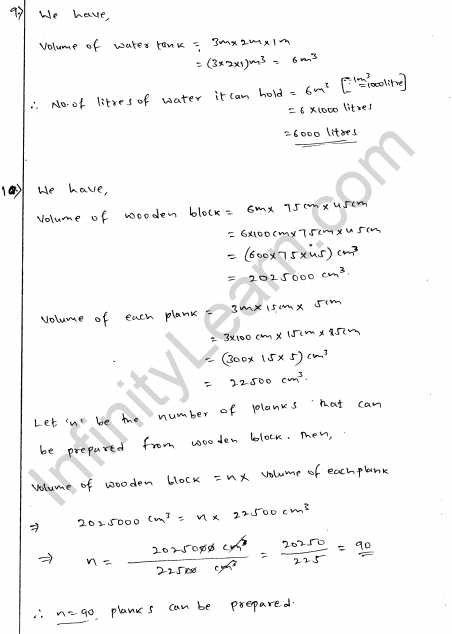 9.) We have,
Volume of water tank = 3m×2m×1m
= (3×2×1)m³ = 6m³
∴ No. of litres of water it can hold = 6m³ [∵ 1m³ = 1000 litre]
= 6 ×1000 litres
= 6000 litres
10.) We have,
Volume of wooden block = 6m× 75cm×45cm
= 6×100cm×75cm×45cm
= (600×75×45) cm³
= 2025000 cm³.
Volume of each plank = 3m×15cm× 5cm
= 3×100 cm×15cm×5cm
= (300×15×5) cm³
= 22500 cm³.
Let 'n' be the number of planks that can
be prepared from wooden block. Then,
Volume of wooden block = n× volume of each plank
⇒ 2025000 cm³ = n × 22500 cm³
⇒ n = 2025000 cm³ / 22500 cm³ = 20250 / 225 = 90
∴ n=90 planks can be prepared.
InfinityLearn.com